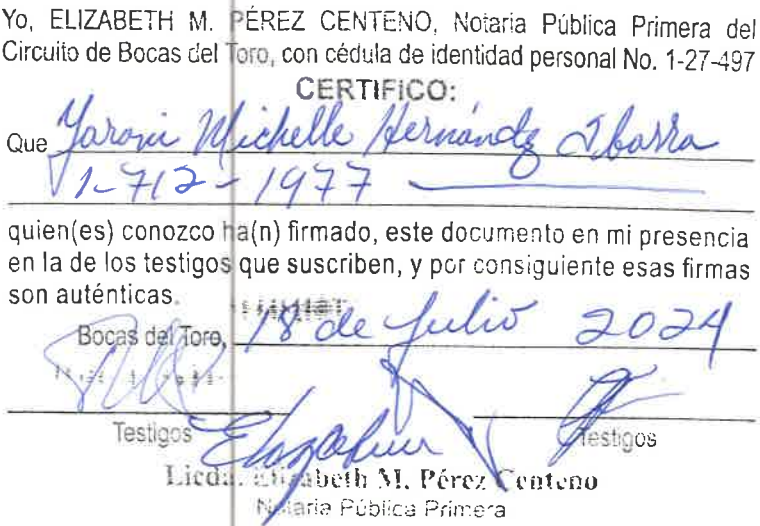 Yo, ELIZABETH M. PÉREZ CENTENO, Notaria Pública Primera del
Circuito de Bocas del Toro, con cédula de identidad personal No. 1-27-497
CERTIFICO:
Que Yaroni Michelle Hernández Ibarra
1-712-1977
quien(es) conozco ha(n) firmado, este documento en mi presencia
en la de los testigos que suscriben, y por consiguiente esas firmas
son auténticas.
Bocas del Toro, 18 de Julio 2024
Testigos Testigos
Licda. Elizabeth M. Pérez Centeno
Notaria Pública Primera